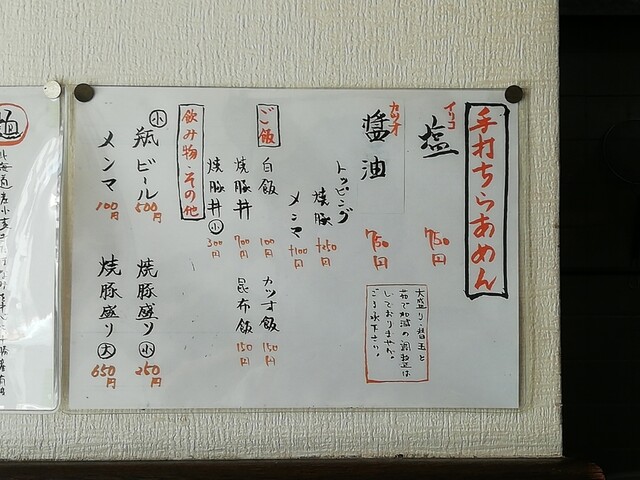 手打ちらあめん
イリコ
塩 750円
カツオ
醤油 750円
大盛り・替玉と
茹で加減の調整は
しておりません。
ご了承下さい。
トッピング
焼豚 +250円
メンマ +100円
ご飯
白飯 100円
カツオ飯 150円
焼豚丼 700円
昆布飯 150円
焼豚丼 小 300円
飲み物・その他
小 瓶ビール 500円
焼豚盛り 小 250円
メンマ 100円
焼豚盛り 大 650円